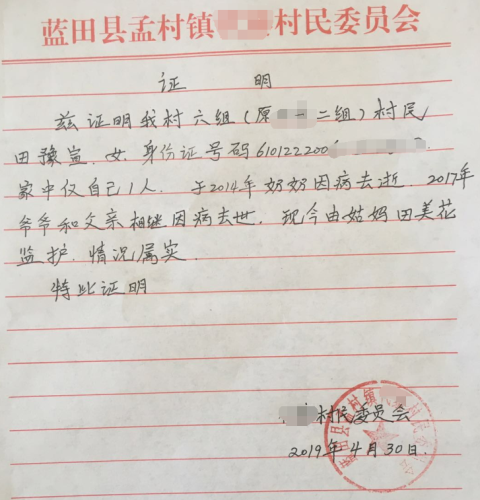 蓝田县孟村镇 村民委员会
证 明
兹证明我村六组(原 一二组)村民
田豫萱,女,身份证号码610122200
家中仅自己1人. 于2014年奶奶因病去逝. 2017年
爷爷和父亲相继因病去世. 现今由姑妈田美花
监护. 情况属实.
特此证明
村民委员会
2019年4月30日.